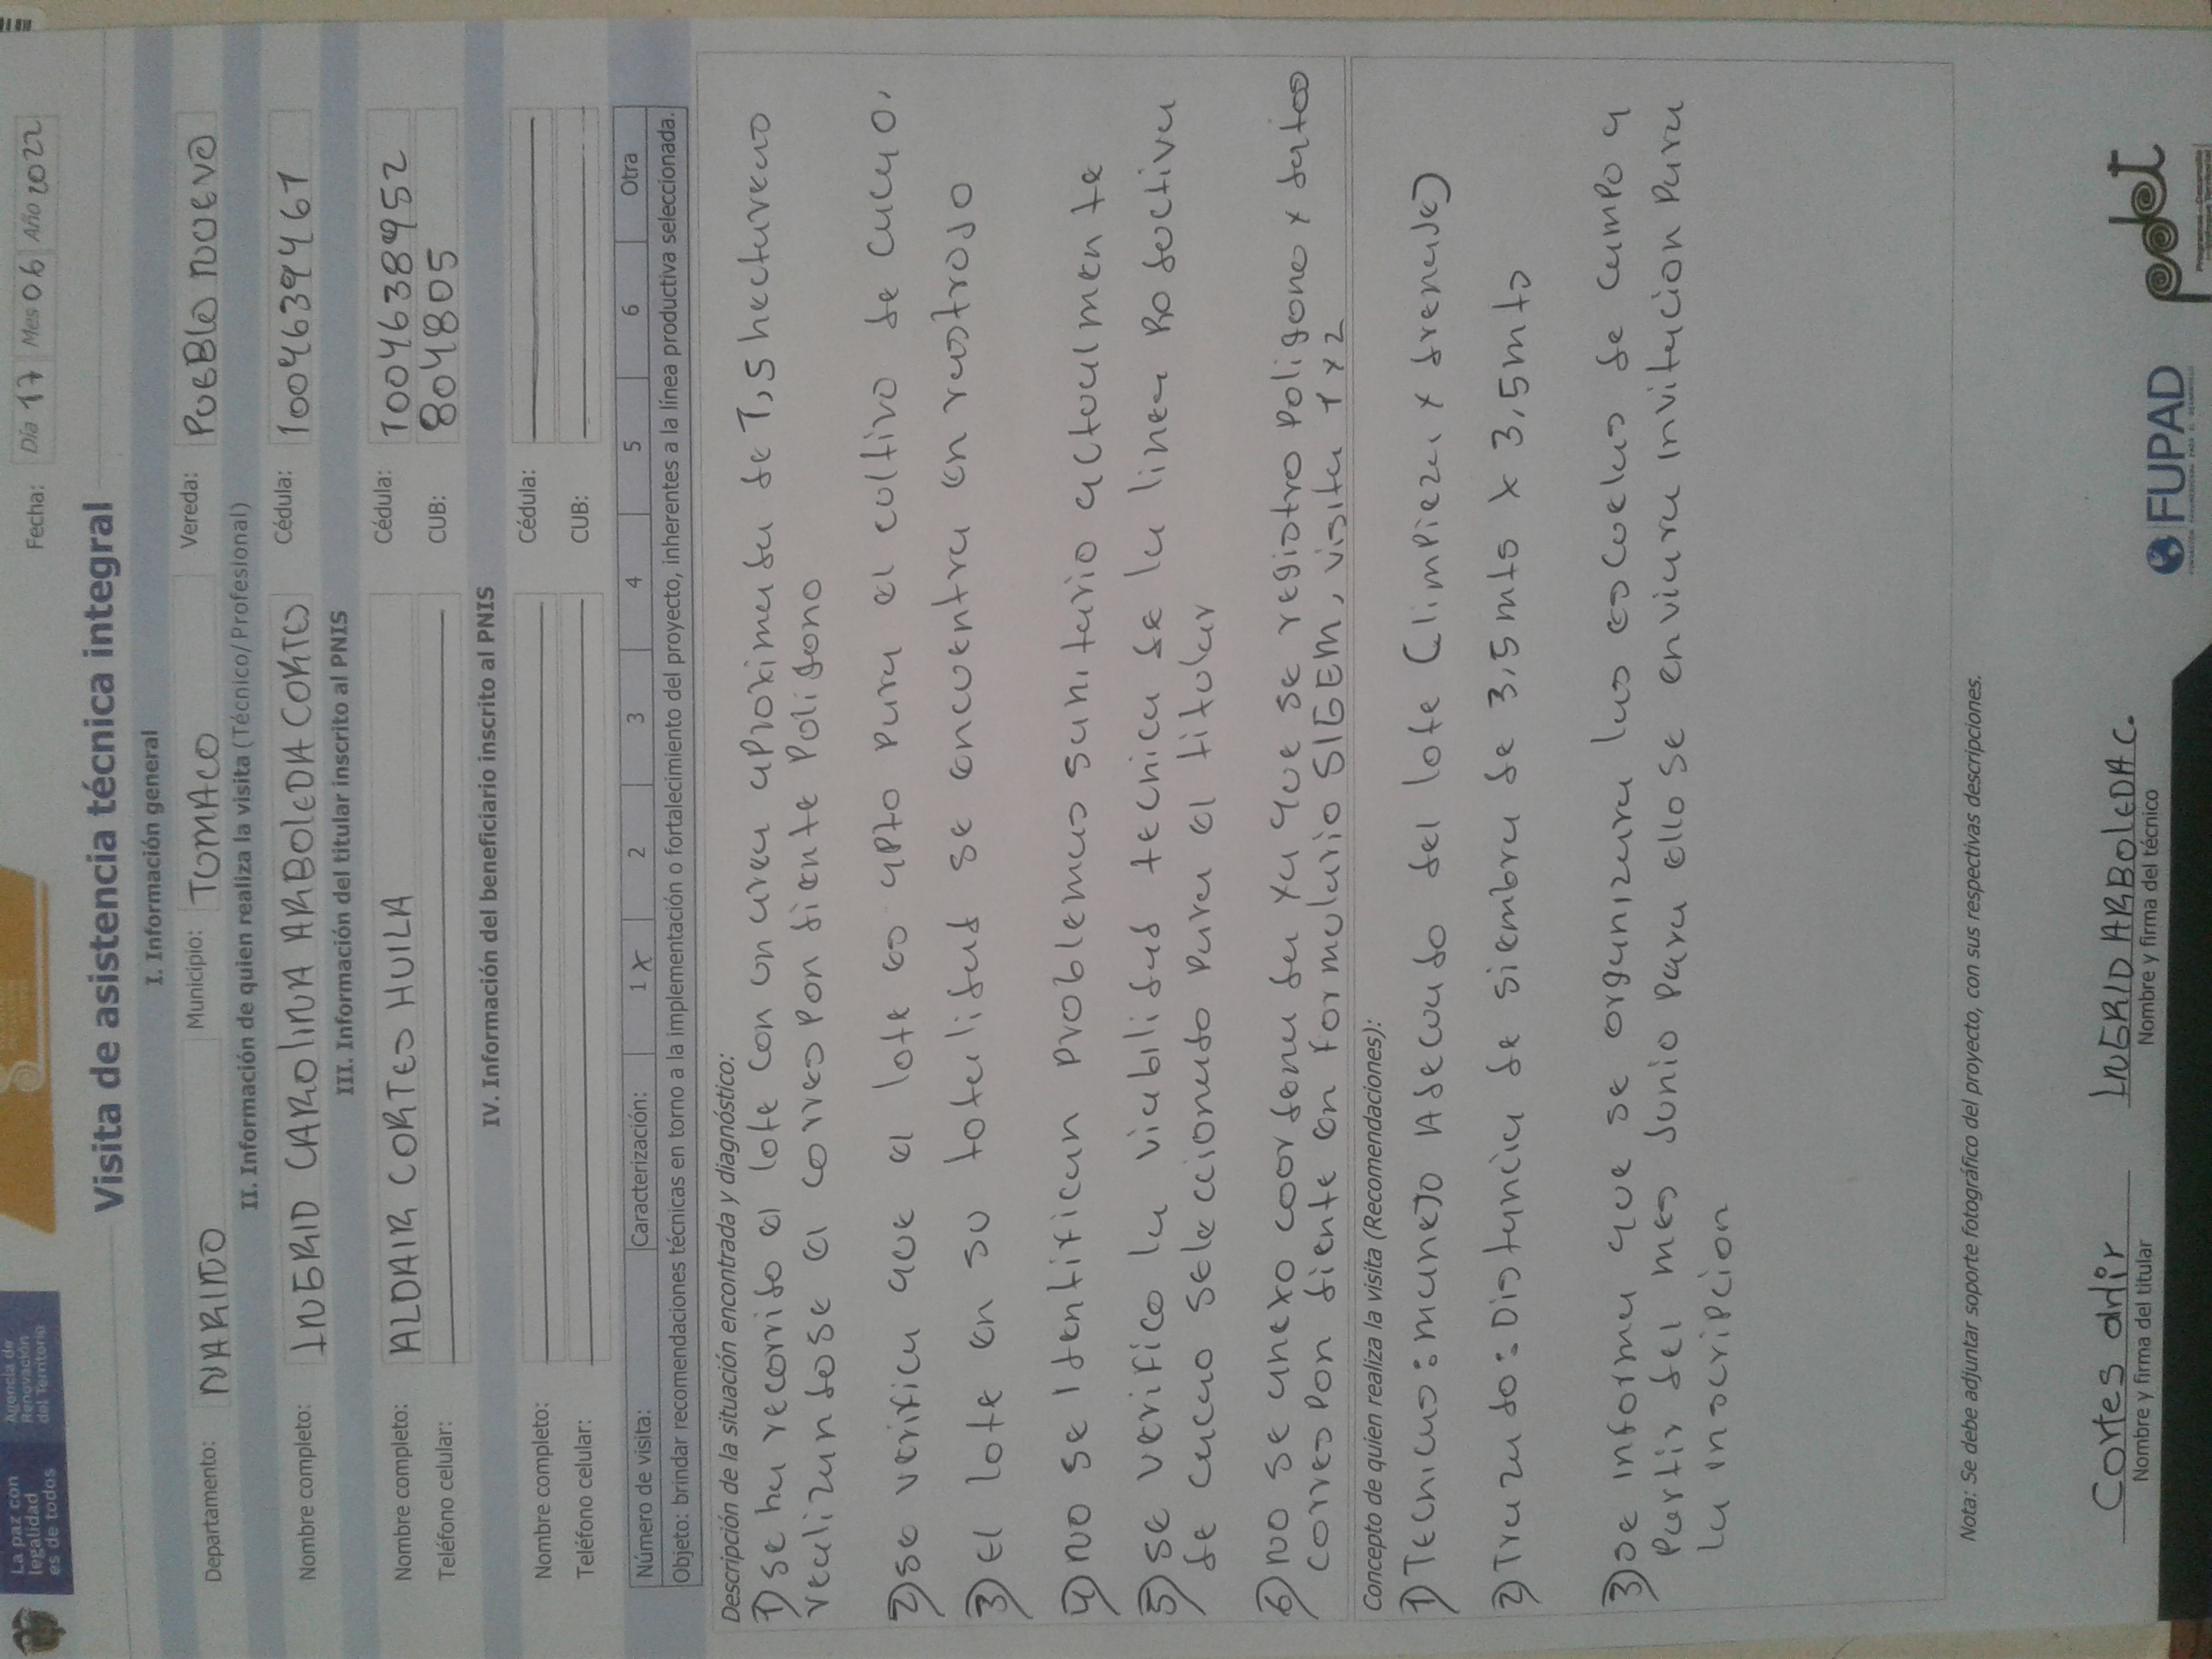 La paz con
legalidad
es de todos
Agencia de
Renovación
del Territorio
Fecha: Día 17 Mes 06 Año 2022
Visita de asistencia técnica integral
I. Información general
Departamento: NARIÑO Municipio: TUMACO Vereda: PUEBLO NUEVO
II. Información de quien realiza la visita (Técnico/Profesional)
Nombre completo: INGRID CAROLINA ARBOLEDA CORTES Cédula: 1004639461
III. Información del titular inscrito al PNIS
Nombre completo: ALDAIR CORTES HUILA Cédula: 1004638952
Teléfono celular: CUB: 8048805
IV. Información del beneficiario inscrito al PNIS
Nombre completo: Cédula:
Teléfono celular: CUB:
Número de visita: Caracterización: 1 X 2 3 4 5 6 Otra
Objeto: brindar recomendaciones técnicas en torno a la implementación o fortalecimiento del proyecto, inherentes a la línea productiva seleccionada.
Descripción de la situación encontrada y diagnóstico:
1) se ha recorrido el lote con un area aproximada de 1,5 hectareas
realizandose el correspondiente Poligono
2) se verifica que el lote es apto para el cultivo de cacao.
3) el lote en su totalidad se encuentra en rastrojo
4) no se identifican problemas sanitario actualmente
5) se verifico la viabilidad tecnica de la linea productiva
de cacao seleccionado para el titular
6) no se anexo coordenada ya que se registro poligono y datos
correspondiente en formulario SIGEM, visita 1 y 2
Concepto de quien realiza la visita (Recomendaciones):
1) Tecnicas: manejo Adecuado del lote (limpieza y drenades)
2) Trazado: Distancia de siembra de 3,5 mts x 3,5 mts
3) se informa que se organizara las escuelas de campo a
partir del mes Junio para ello se enviara invitacion para
la inscripcion
Nota: Se debe adjuntar soporte fotográfico del proyecto, con sus respectivas descripciones.
Cortes aldir INGRID ARBOLEDA C.
Nombre y firma del titular Nombre y firma del técnico
FUPAD
pdet